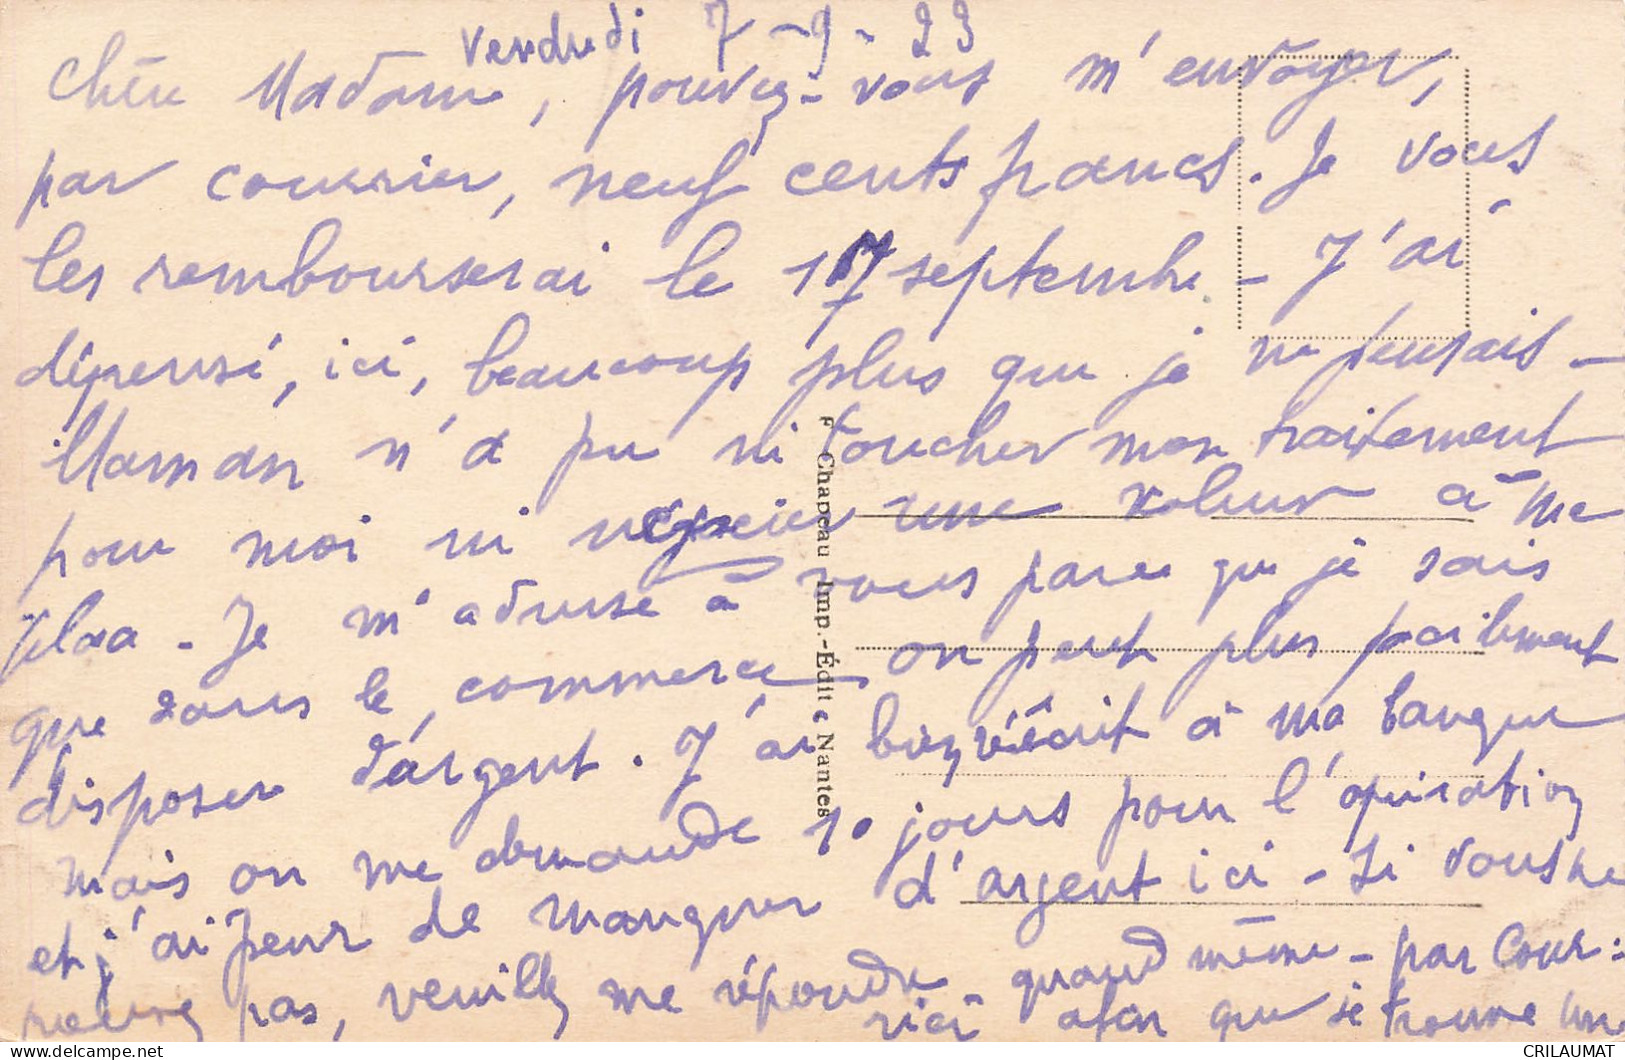 Vendredi 7-9-23
Chère Madame, pouvez-vous m'envoyer,
par courrier, neuf cents francs. Je vous
les rembourserai le 17 septembre - J'ai
dépensé, ici, beaucoup plus que je ne pensais -
Maman n'a pu ni toucher mon traitement
pour moi ni négocier une valeur à me
. Je m'adresse à vous parce que je sais
que dans le commerce on peut plus facilement
disposer d'argent. J'ai bien écrit à ma banque
mais on me demande 10 jours pour l'opération
et j'ai peur de manquer d'argent ici - Si vous ne
pouvez pas, veuillez me répondre quand même - par cour:
rier afin que je trouve une
F. Chapeau Imp.-Édit. Nantes
CRILAUMAT
www.delcampe.net